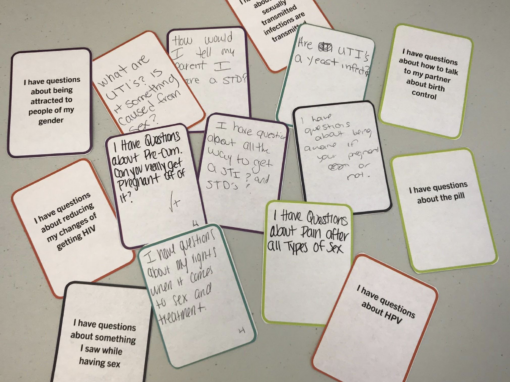 sexually
transmitted
infections are
transmitted
I have questions
about being
attracted to
people of my
gender
what are
UTI's? Is
it something
caused from
sex?
How would
I tell my
parent I
have a STD?
Are UTI's
a yeast infection
I have questions
about how to talk
to my partner
about birth
control
I Have Questions
about Pre-Cum.
Can you really get
Pregnant off of
it?
I have question
about all the
way to get
a STI? and
STD's?
I have
questions
about being
aware if
your pregnant
or not.
I have questions
about the pill
I have questions
about reducing
my changes of
getting HIV
I have questions
about my rights
when it comes
to sex and
treatment.
4
I Have Questions
about Pain after
all Types of Sex
I have questions
about HPV
I have questions
about something
I saw while
having sex